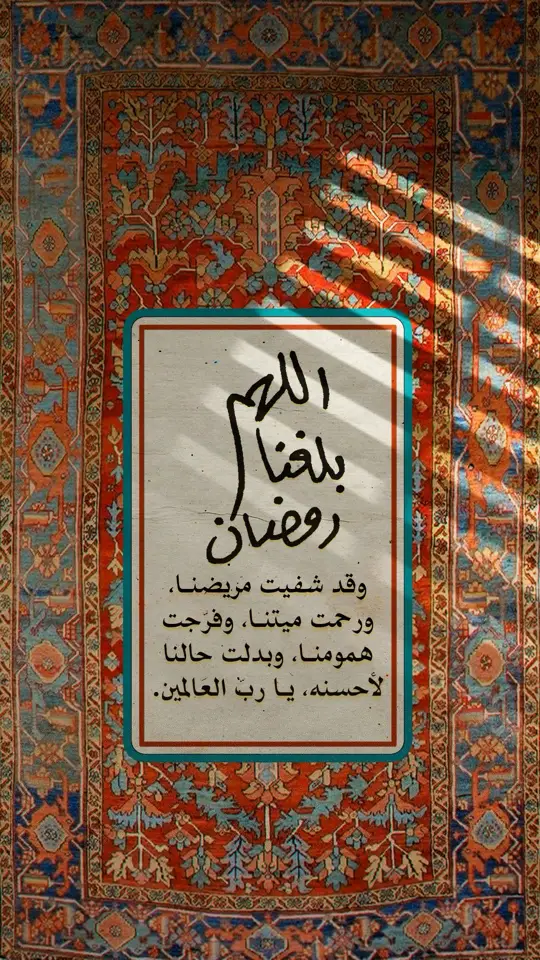 اللهم
بلغنا
رمضان
وقد شفيت مريضنا،
ورحمت ميتنا، وفرّجت
همومنا، وبدلت حالنا
لأحسنه، يا رب العالمين.